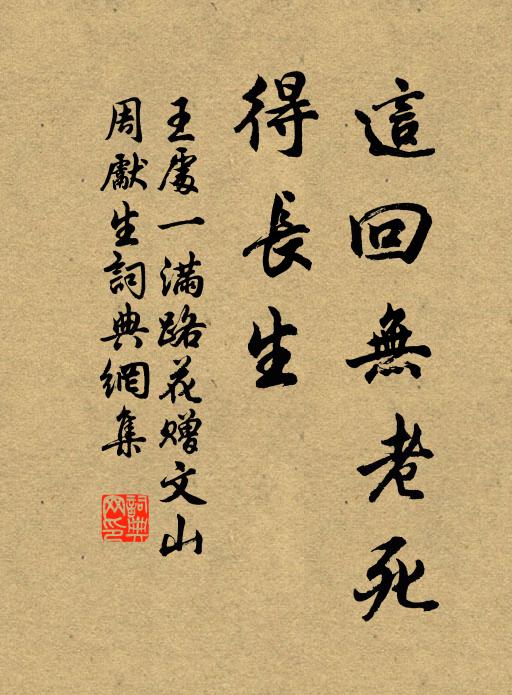 這回無老死
得長生
王處一滿路花贈文山
周獻生詞典網集
詞典
网印